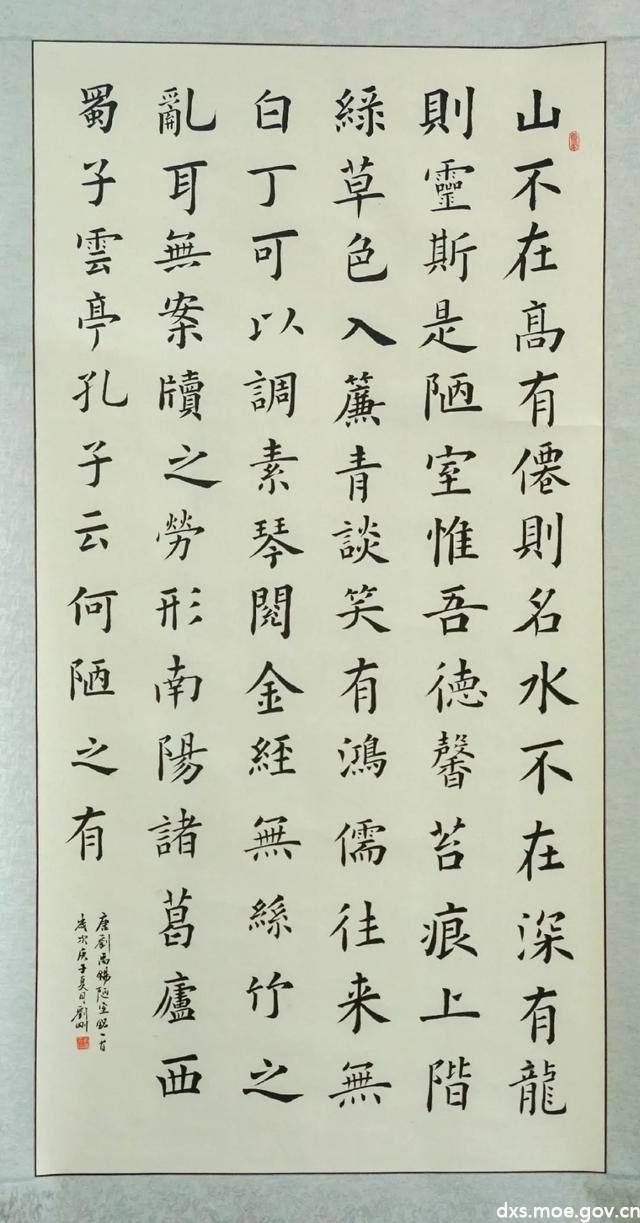 山不在高有僊則名水不在深有龍
則靈斯是陋室惟吾德馨苔痕上階
綠草色入簾青談笑有鴻儒往来無
白丁可以調素琴閱金經無絲竹之
亂耳無案牘之勞形南陽諸葛廬西
蜀子雲亭孔子云何陋之有
唐劉禹錫陋室銘一首
歲次庚子夏月劉刚
dxs.moe.gov.cn